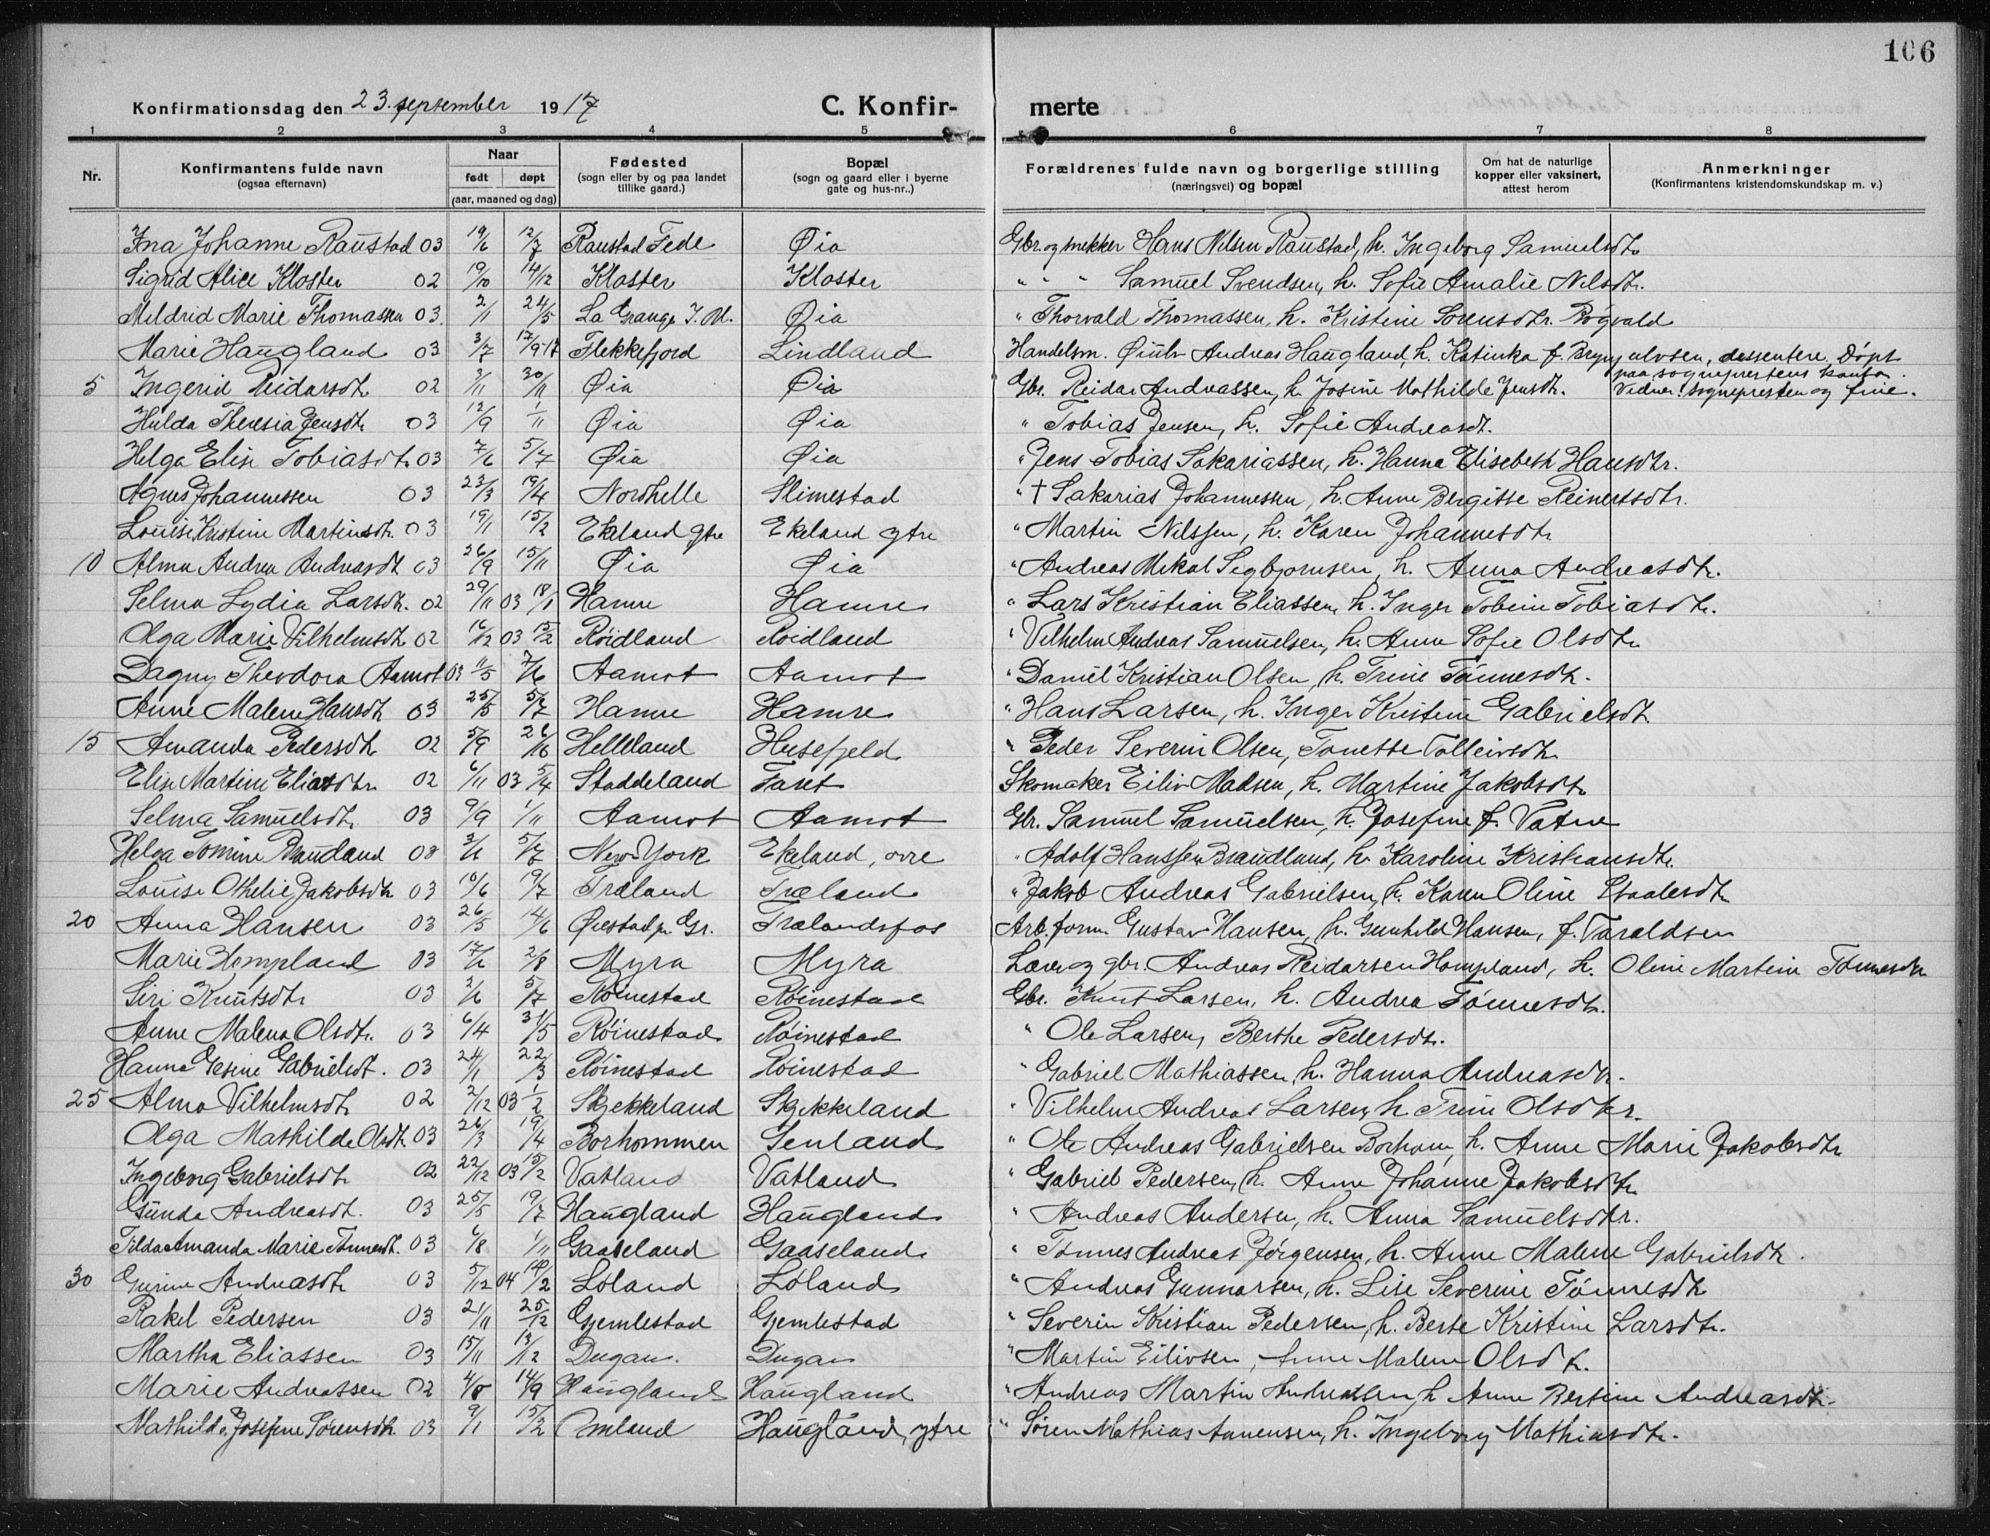 106
Konfirmationsdag den 23. september 1917 C. Konfir- merte
1 2 3 4 5 6 7 8
Nr. Konfirmantens fulde navn (ogsaa efternavn) Naar født døpt (aar, maaned og dag) Fødested (sogn eller by og paa landet tillike gaard.) Bopæl (sogn og gaard eller i byerne gate og hus-nr..) Forældrenes fulde navn og borgerlige stilling (næringsvei) og bopæl Om hat de naturlige kopper eller vaksinert, attest herom Anmerkninger (Konfirmantens kristendomskundskap m. v.)
Ina Johanne Raustad 03 19/6 12/7 Raustad Fede Øia Gbr. og snekker Hans Nilsen Raustad, h. Ingeborg Samuelsdtr
Sigrid Alice Kloster 02 19/10 14/12 Kloster Kloster " " " Samuel Svendsen, h. Sofie Amalie Nilsdtr.
Mildrid Marie Thomassen 03 2/1 24/5 La Grange Øia " Thorvald Thomassen, h. Kristine Sørensdtr. Røgvald
Marie Haugland 03 3/7 17/9 17 Flekkefjord Lindland Handelsm. Andreas Haugland, h. Katinka f. Brynjulvsen, dessentere. Døpt
paa sogneprestens kontor.
5 Ingerid Reidarsdtr 02 2/11 30/11 Øia Øia Gbr. Reidar Andreassen, h. Josine Mathilde Jensdtr. Vidner: Sognepresten og frue.
Hulda Theresia Jensdtr 03 12/9 1/11 Øia Øia " Tobias Jensen, h. Sofie Andreasdt.
Helga Elise Tobiasdtr 03 7/6 5/7 Øia Øia " Jens Tobias Sakariassen, h. Hanna Elisebeth Hansdtr.
Agnes Johannessen 03 23/3 19/4 Nordhelle Slimestad " † Sakarias Johannessen, h. Anne Bergitte Reinertsdtr.
Louise Kristine Martinsdtr. 03 19/1 15/2 Ekeland ytre Ekeland ytre " Martin Nilssen, h. Karen Johannesdtr
10 Alma Andrea Andreasdt 03 26/9 15/11 Øia Øia " Andreas Mikal Sigbjørnsen, h. Anna Andreasdtr.
Selma Lydia Larsdtr. 02 29/11 03 18/1 Hamre Hamre " Lars Kristian Eliassen, h. Inger Tobine Tobiasdtr.
Olga Marie Vilhelmsdtr 02 16/12 03 15/2 Røidland Røidland " Vilhelm Andreas Samuelsen, h. Anne Sofie Olsdtr
Dagny Theodora Aamot 03 11/5 7/6 Aamot Aamot " Daniel Kristian Olsen, h. Trine Tønnesdtr.
Anne Malene Hansdtr 03 25/5 5/7 Hamre Hamre " Hans Larsen, h. Inger Kristine Gabrielsdtr
15 Amanda Pedersdtr 02 5/9 26/10 Helleland Husefjeld " Peder Severin Olsen, Tonette Tolleivsdtr
Elise Martine Eliasdtr 02 6/11 03 5/4 Staddeland Faret Skomaker Eiliv Madsen, h. Martine Jakobsdtr
Selma Samuelsdtr 03 9/9 1/11 Aamot Aamot Gbr. Samuel Samuelsen, h. Josefine f. Vatne
Helga Tomine Braudland 03 5/7 New York Ekeland, øvre " Adolf Hanssen Braudland, h. Karoline Kristiansdtr.
Louise Othelie Jakobsdtr 03 10/6 19/7 Træland Træland " Jakob Andreas Gabrielsen, h. Karen Oline Staalesdtr
20 Anna Hansen 03 26/5 14/6 Øiestad pr. Gr. Trælandsfos Arb. form. Gustav Hansen, h. Gunhild Hansen, f. Taraldsen
Marie Hompland 03 17/6 2/8 Myra Myra Lærer og gbr. Andreas Reidarsen Hompland, h. Oline Martine Tønnesdtr
Siri Knutsdtr 03 2/6 5/7 Røinestad Røinestad Gbr. Knut Larsen, h. Andrea Tønnesdtr.
Anne Malena Olsdtr. 03 6/4 31/5 Røinestad Røinestad " Ole Larsen, Berthe Pedersdtr.
Hanna Gesine Gabrielsdt. 03 24/1 22/3 Røinestad Røinestad " Gabriel Mathiassen, h. Hanna Andreasdtr.
25 Alma Vilhelmsdtr 02 2/12 03 1/2 Skjekkeland Skjekkeland " Vilhelm Andreas Larsen, h. Trine Olsdtr.
Olga Mathilde Olsdtr. 03 26/3 19/4 Borhommen Senland " Ole Andreas Gabrielsen Borhom, h. Anne Marie Jakobsdtr
Ingeborg Gabrielsdtr 02 22/12 03 15/2 Vatland Vatland " Gabriel Pedersen, h. Anne Johanne Jakobsdtr
Gunda Andreasdt. 03 25/5 19/7 Haugland Haugland " Andreas Andersen, h. Anna Samuelsdtr.
Tilda Amanda Marie Tønnesdt. 03 6/8 1/11 Gaaseland Gaaseland " Tønnes Andreas Jørgensen, h. Anne Malene Gabrielsdtr.
30 Gurine Andreasdtr 03 5/12 04 14/2 Løland Løland " Andreas Gunnarsen, h. Lise Severine Tønnesdtr
Rakel Pedersen 03 21/11 25/12 Gjemlestad Gjemlestad " Severin Kristian Pedersen, h. Berte Kristine Larsdtr.
Martha Eliassen 03 15/11 13/12 Dugan. Dugan " Martin Eilivsen, Anne Malene Olsdtr.
Marie Andreassen 02 4/8 14/9 Haugland Haugland " Andreas Martin Andreassen, h. Anne Bertine Andreasdtr.
Mathilde Josefine Sørensdtr 03 9/1 15/2 Omland Haugland, ytre " Søren Mathias Aanensen, h. Ingeborg Mathiasdtr.